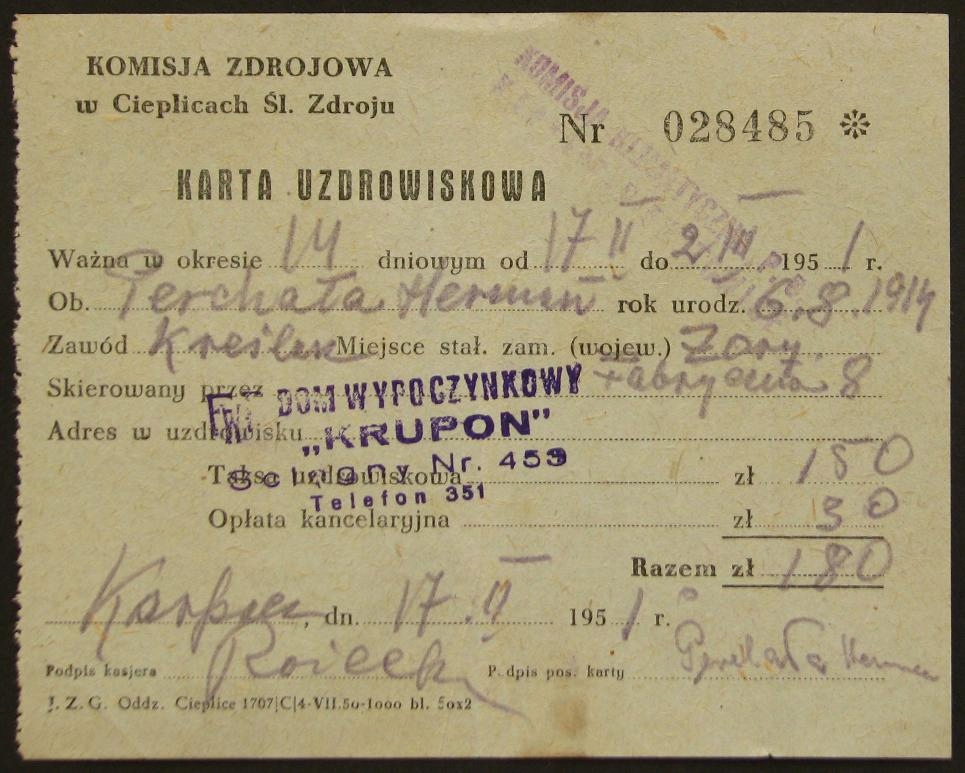 KOMISJA ZDROJOWA
w Cieplicach Śl. Zdroju
Nr 028485
KARTA UZDROWISKOWA
Ważna w okresie 14 dniowym od 17 II do 2 III 1951 r.
Ob. Perchała Herman rok urodz. 6.8.1914
Zawód Kreślarz Miejsce stał. zam. (wojew.) Żory.
Fabryczna 8
Skierowany przez
FWP DOM WYPOCZYNKOWY
Adres w uzdrowisku
„KRUPON”
Nr. 453
Taksa uzdrowiskowa zł 150
Telefon 351
Opłata kancelaryjna zł 30
Razem zł 180
Karpacz, dn. 17.II 1951 r.
Podpis kasjera Podpis pos. karty Perchała Herman
J. Z. G. Oddz. Cieplice 1707|C|4-VII.50-1000 bl. 50x2